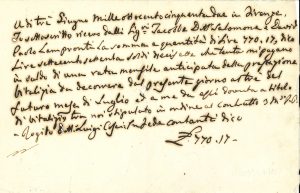 A dì tre Giugno Mille ottocento cinquantadue in Firenze.
Io sottoscritto ricevo dalli Sig.ri Jacobbe Dott. Salomone e David
Paolo Lampronti la somma e quantità di Lire 770. 17, dico
Lire settecento settanta soldi diciassette che tante mi pagano
in saldo di una rata mensile anticipata della prestazione
Vitalizia da decorrere dal presente giorno a tre del
futuro mese di Luglio ed a me da essi dovuta a titolo
di Vitalizio stipulato in ordine al contratto 3
Rogito Dott. Luigi contante dico
£. 770. 17. -